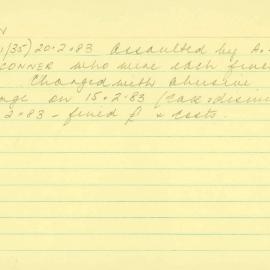 1/35) 20.2.83 assaulted by A.
CONNER who were each fine
Charged with abusive
nge on 15.2.83 (case dismi
2.83 - fined & costs.